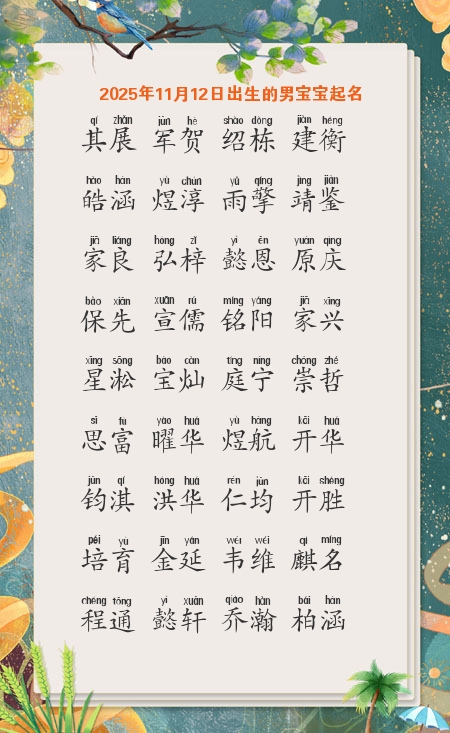 2025年11月12日出生的男宝宝起名
qí zhǎn jūn hè shào dòng jiàn héng
其展 军贺 绍栋 建衡
hào hán yù chún yǔ qíng jìng jiàn
皓涵 煜淳 雨擎 靖鉴
jiā liáng hóng zǐ yì ēn yuán qìng
家良 弘梓 懿恩 原庆
bǎo xiān xuān rú míng yáng jiā xīng
保先 宣儒 铭阳 家兴
xīng sōng bǎo càn tíng níng chóng zhé
星淞 宝灿 庭宁 崇哲
sī fù yào huá yù háng kāi huá
思富 曜华 煜航 开华
jūn qí hóng huá rén jūn kāi shèng
钧淇 洪华 仁均 开胜
péi yù jīn yán wéi wéi qí míng
培育 金延 韦维 麒名
chéng tōng yì xuān qiáo hàn bǎi hán
程通 懿轩 乔瀚 柏涵